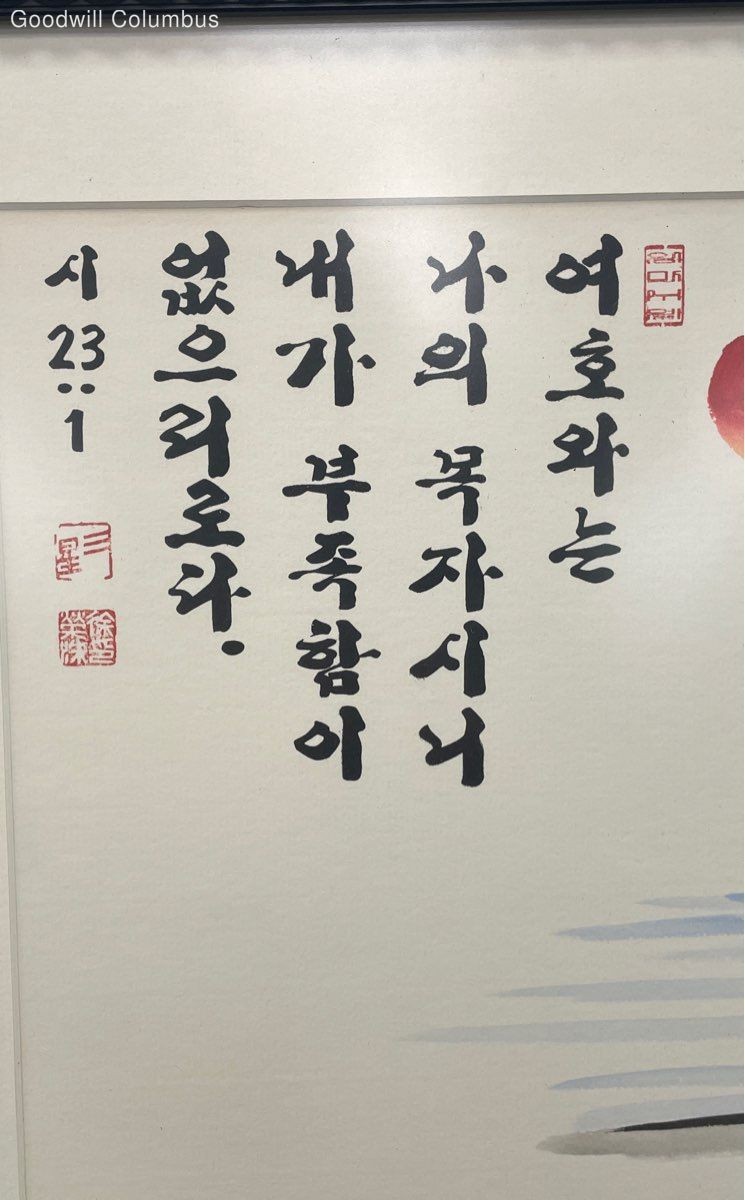 Goodwill Columbus
여호와는
나의 목자시니
내가 부족함이
없으리로다.
시 23:1